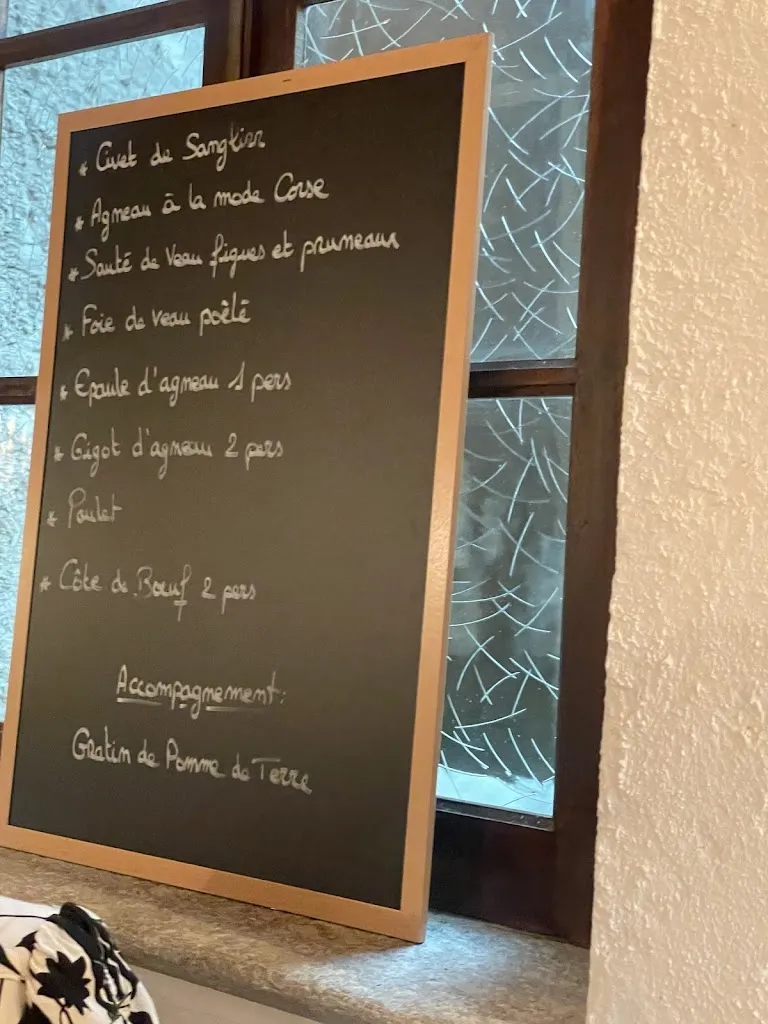 * Civet de Sanglier
* Agneau à la mode Corse
* Sauté de Veau figues et pruneaux
* Foie de veau poêlé
* Epaule d'agneau 1 pers
* Gigot d'agneau 2 pers
* Poulet
* Côte de Boeuf 2 pers
Accompagnement:
Gratin de Pomme de Terre